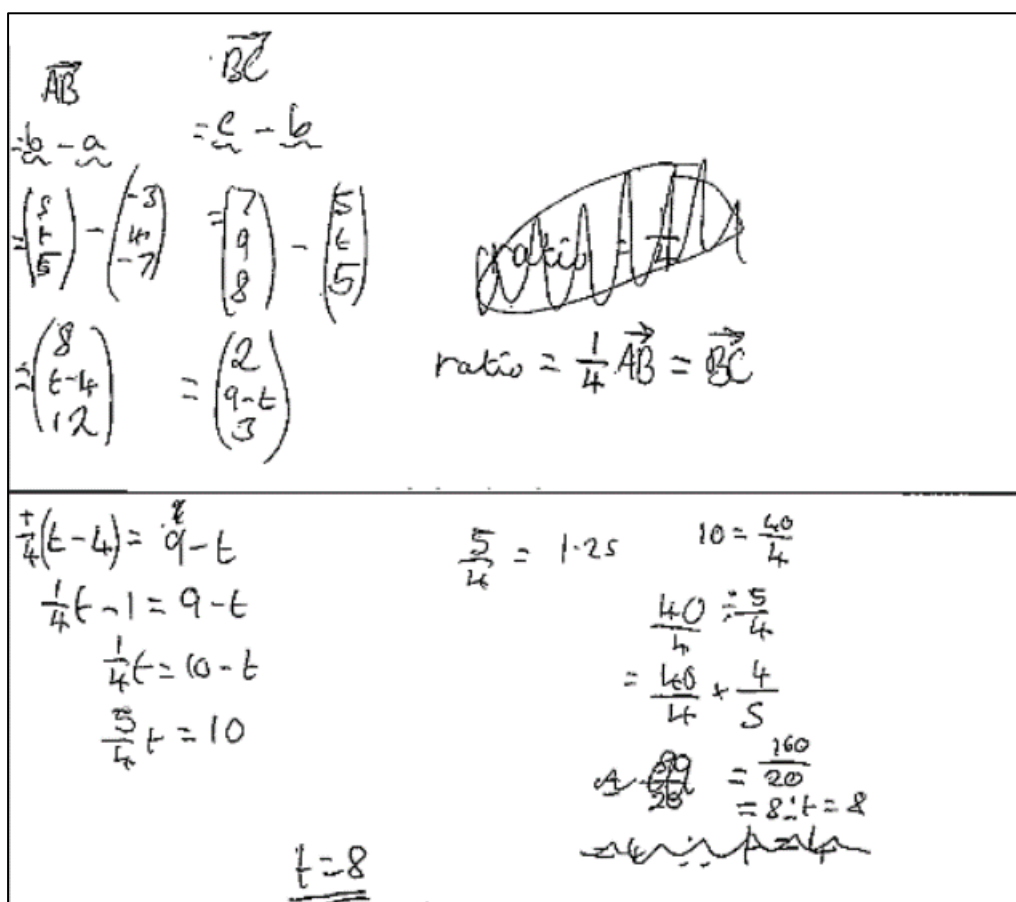 AB→
= b - a
= (5, t, 5) - (-3, 4, -7)
= (8, t-4, 12)
BC→
= c - b
= (7, 9, 8) - (5, t, 5)
= (2, 9-t, 3)
ratio =
ratio = 1/4 AB→ = BC→
1/4(t-4) = 9-t
1/4t - 1 = 9-t
1/4t = 10-t
5/4t = 10
5/4 = 1.25
10 = 40/4
40/4 ÷ 5/4
= 40/4 × 4/5
= 160/20
= 8 ∴ t = 8
t = 8